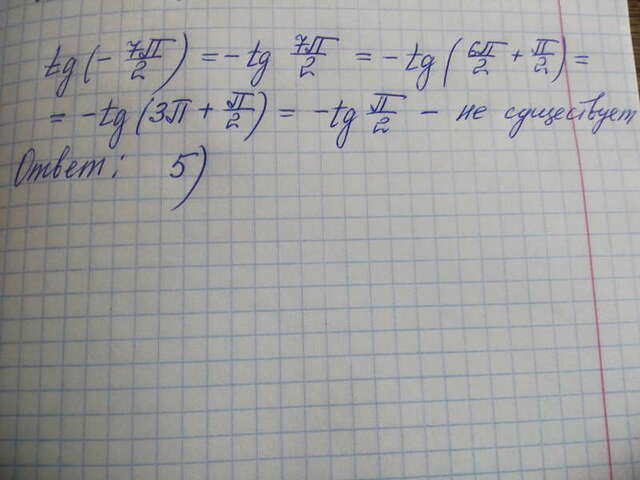 tg(- 7π/2) = - tg 7π/2 = - tg(6π/2 + π/2) =
= - tg(3π + π/2) = - tg π/2 - не существует
Ответ: 5)